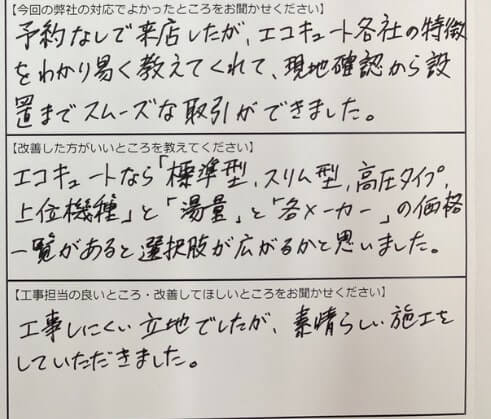 【今回の弊社の対応でよかったところをお聞かせください】
予約なしで来店したが、エコキュート各社の特徴
をわかり易く教えてくれて、現地確認から設
置までスムーズな取引ができました。
【改善した方がいいところを教えてください】
エコキュートなら「標準型、スリム型、高圧タイプ、
上位機種」と「湯量」と「各メーカー」の価格
一覧があると選択肢が広がるかと思いました。
【工事担当の良いところ・改善してほしいところをお聞かせください】
工事しにくい立地でしたが、素晴らしい施工を
していただきました。